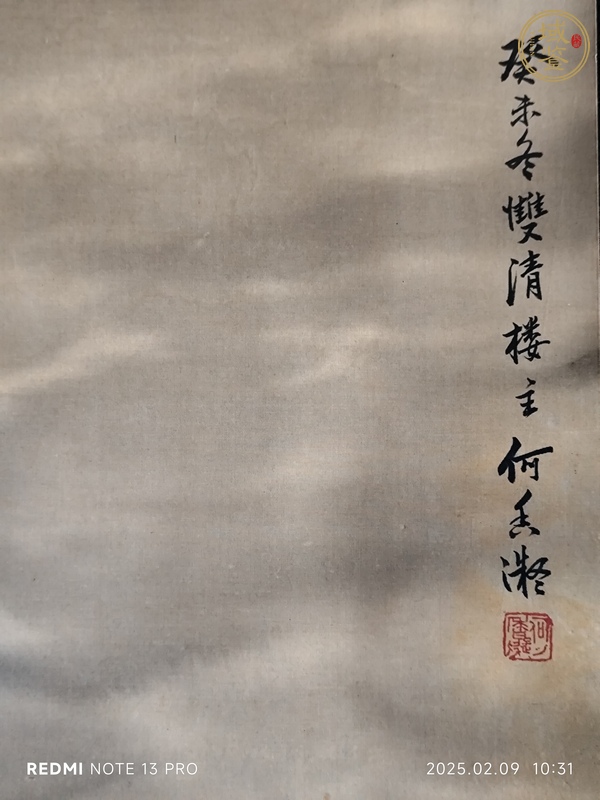 癸未冬雙清楼主何香凝
何香凝
REDMI NOTE 13 PRO
2025.02.09 10:31